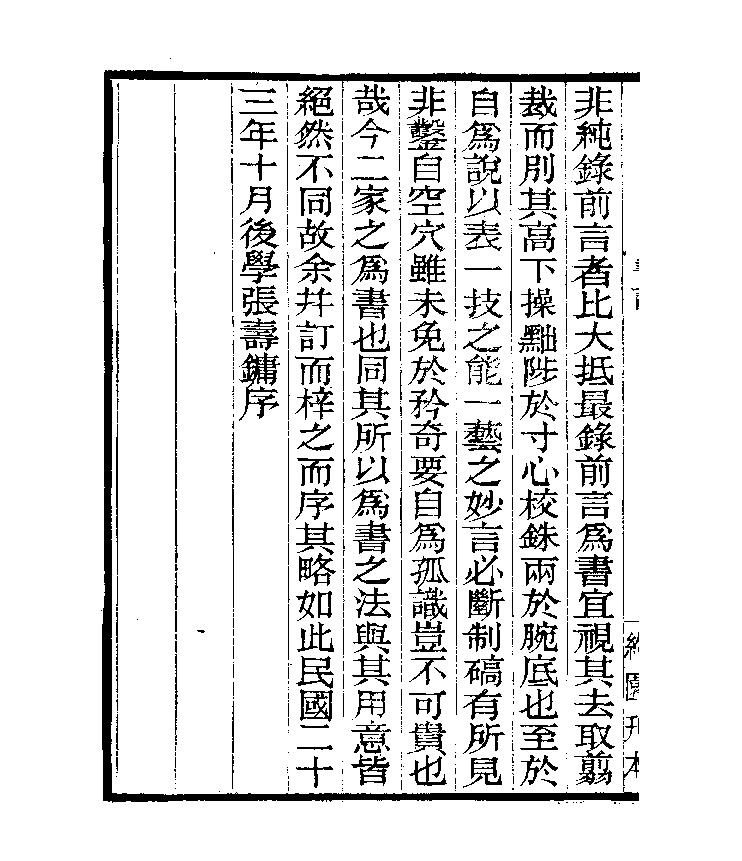 非純錄前言者比大抵最錄前言爲書宜視其去取翦
裁而別其高下操黜陟於寸心校銖兩於腕底也至於
自爲說以表一技之能一藝之妙言必斷制碻有所見
非鑿自空穴雖未免於矜奇要自爲孤識豈不可貴也
哉今二家之爲書也同其所以爲書之法與其用意皆
絕然不同故余幷訂而梓之而序其略如此民國二十
三年十月後學張壽鏞序
約園刊本